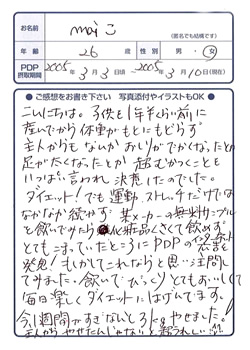 お名前
maiこ
(匿名でも結構です)
年齢 26 歳 性別 男・女
PDP 摂取期間 2005年3月3日頃～2005年3月10日(現在)
●ご感想をお書き下さい 写真添付やイラストもOK●
こんにちは。子供を1年半くらい前に
産んでから体重がもとにもどらず
主人からもなんかおしりがでかくなったとか
足がたくなったとか 超むかつくことを
いっぱい言われ 決意したのでした。
ダイエット!でも運動、ストレッチだけでは
なかなか続かず 某メーカーの無料サンプル
を飲んでみたら 化粧品くさくて飲めず
とてもこまっていたところにPDPの
広告を
発見!もしかしてこれならと思い注閏し
てみました。飲んでびっくりとてもおいしくて
毎日楽しくダイエットにはげんでます。
今1週間がすぎないところ やせました。
主人からやせたんじゃないと
うれしい